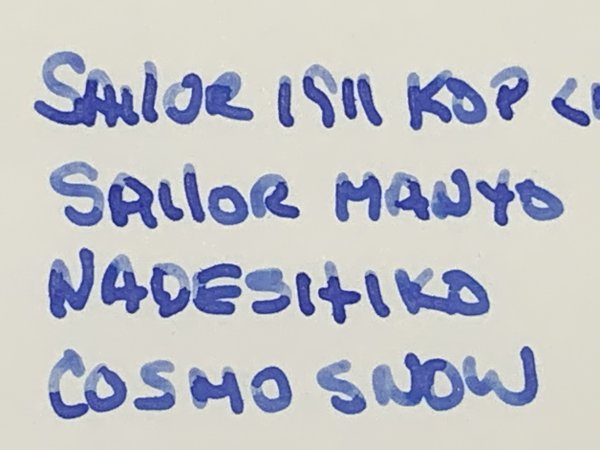 SAILOR 1911 KOP
SAILOR MANYO
NADESHIKO
COSMO SNOW